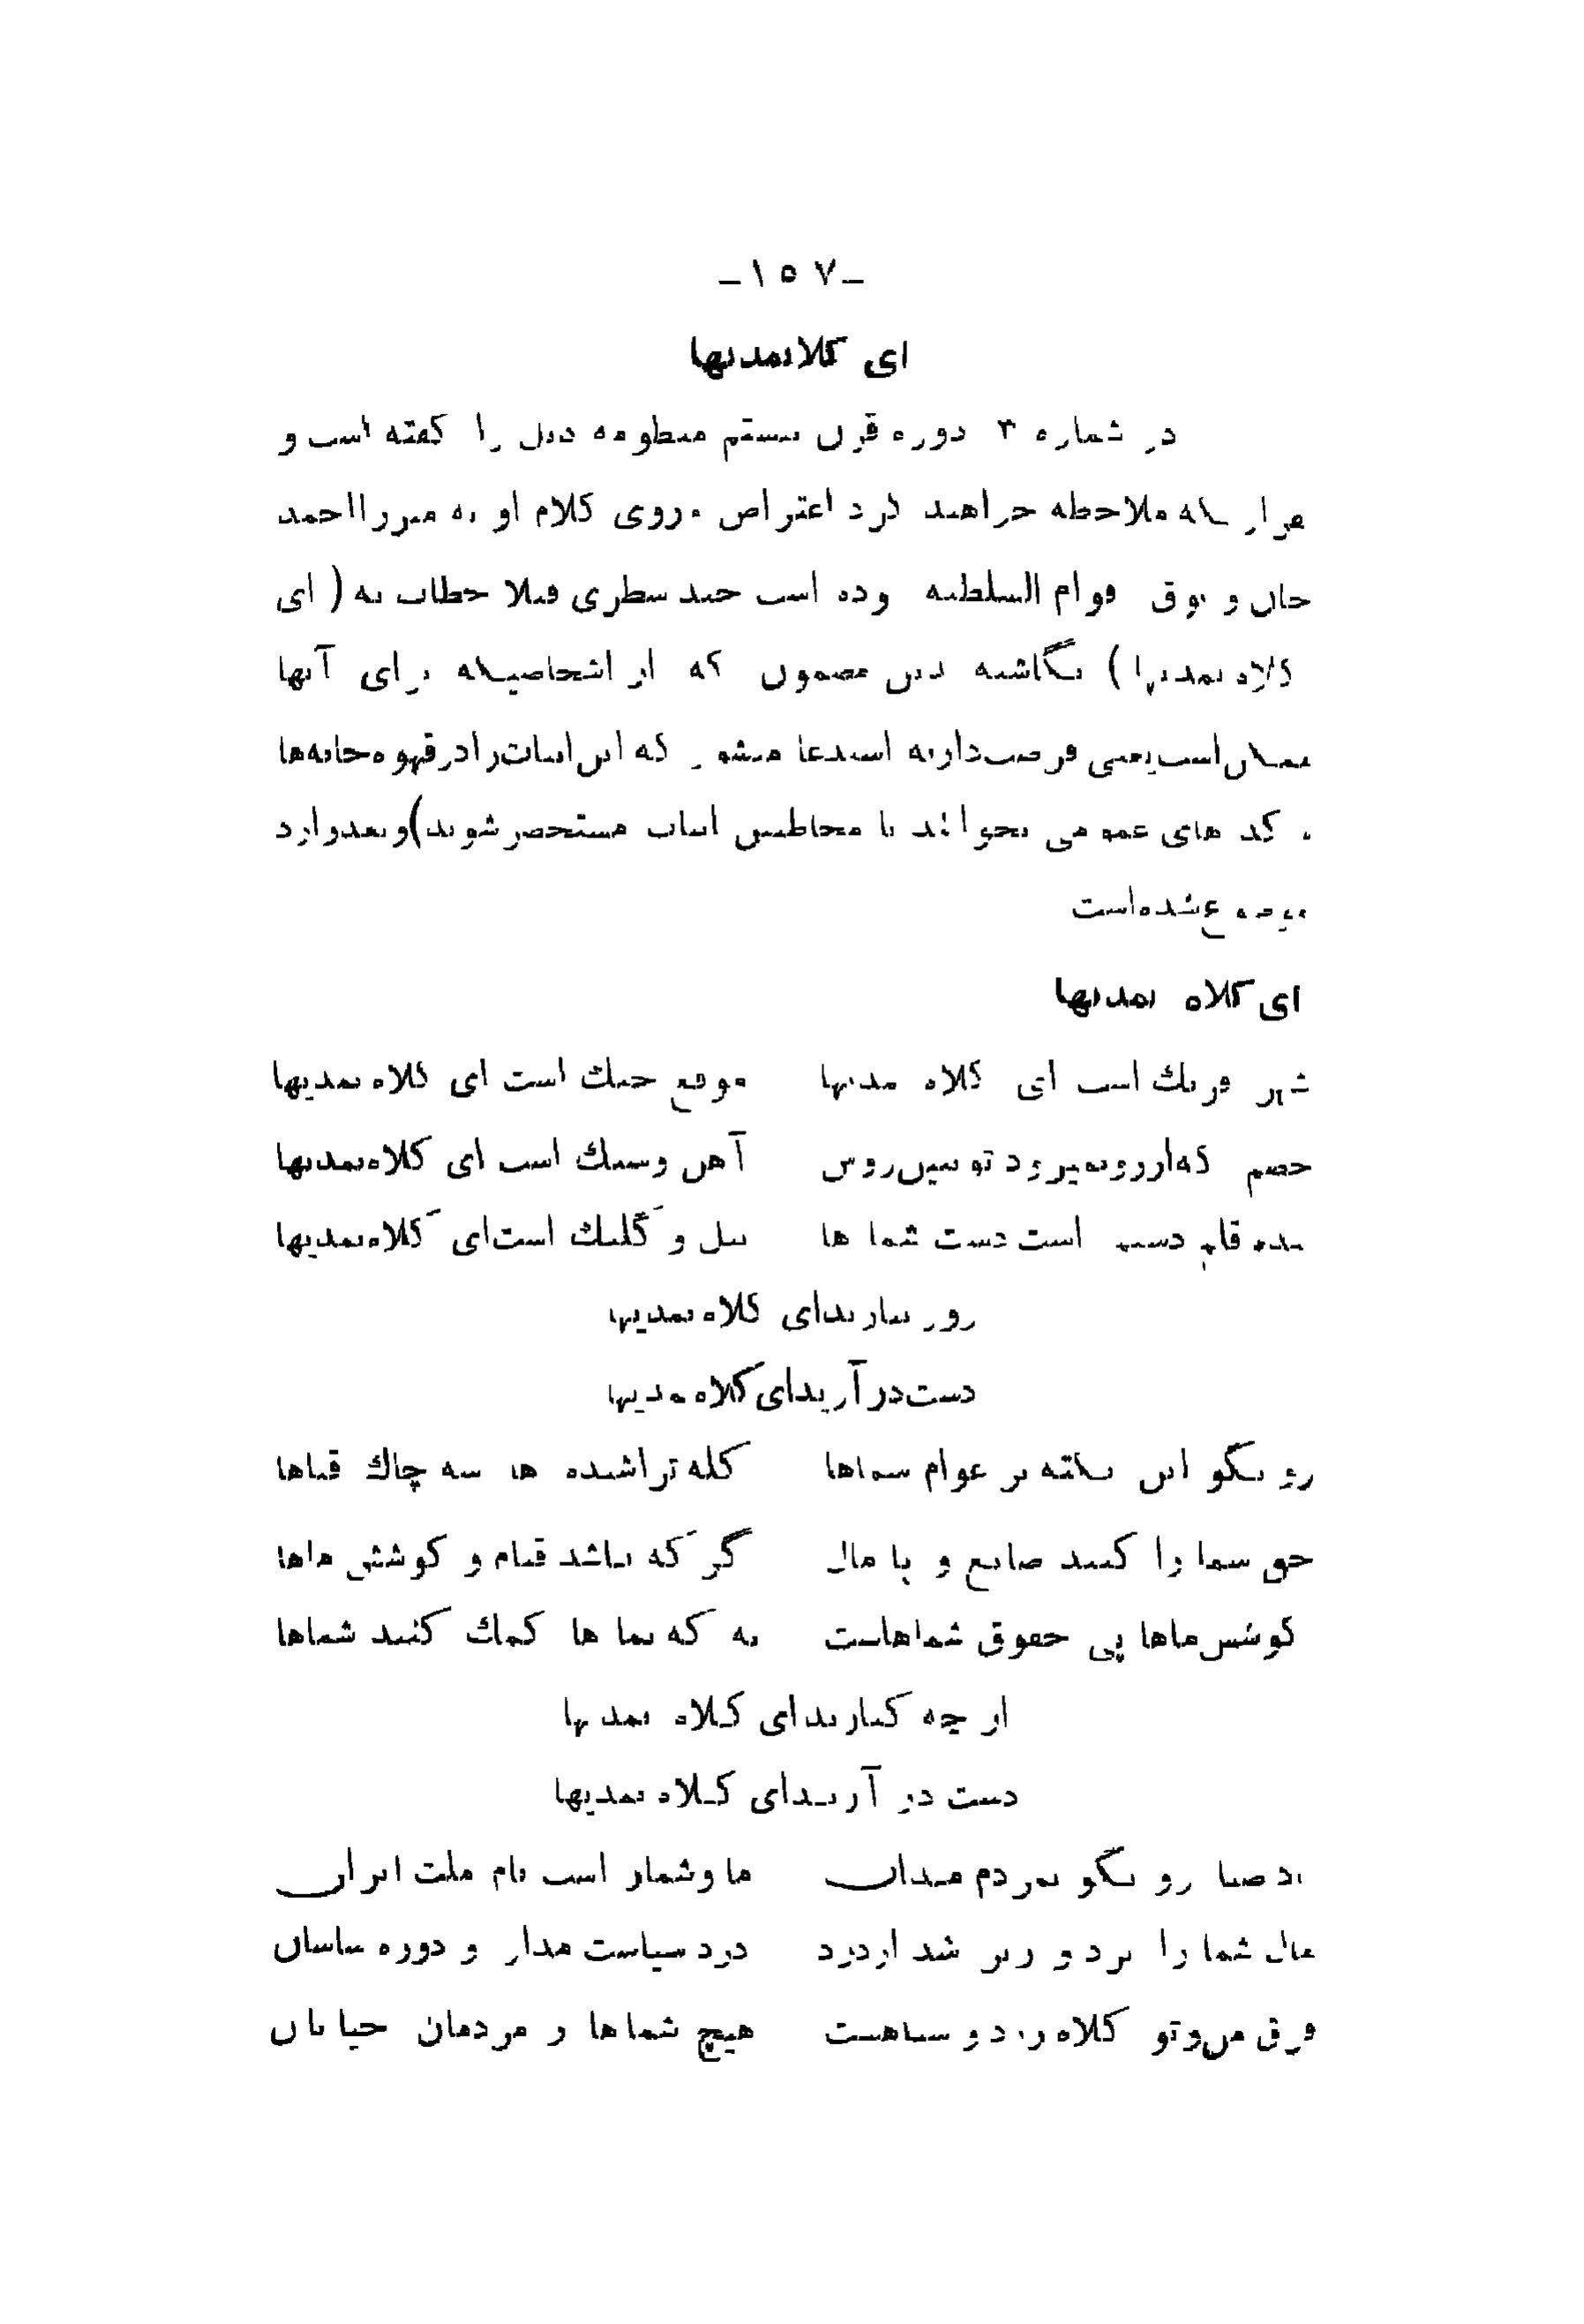 -۱۵۷-
ای کلاه نمدیها
در شماره ۳ دوره قرن بیستم منظومه ذیل را گفته است و
قراریکه ملاحظه خواهید کرد اعتراض بروی کلام او به میرزا احمد
خان و ثوق قوام السلطنه بوده است چند سطری قبلا خطاب به ( ای
کلاه نمدیها ) نگاشته بدین مضمون که از اشخاصیکه برای آنها
ممکن است یعنی فرصت دارند استدعا میشود که این ابیات را در قهوه خانه ها
کد های عمومی بخوانند تا مخاطبین ابیات مستحضر شوند) و بعد وارد
موضوع شده است
ای کلاه نمدیها
شهر فرنك است ای کلاه نمدیها موقع جنك است ای کلاه نمدیها
خصم که از رو نمیرود تو ببین روش آهن و سنك است ای کلاه نمدیها
بنده قلم دستم است دست شما ها بیل و کلنك است ای کلاه نمدیها
زور بیارید ای کلاه نمدیها
دست در آرید ای کلاه نمدیها
رو بگو این نکته بر عوام نماها کله تراشیده ها سه چاك قباها
حق شما را کنند ضایع و پا مال گر که نباشد قیام و کوشش ماها
کوشش ماها پی حقوق شماهاست به که بما ها کمك کنید شماها
از چه کنارید ای کلاه نمدیها
دست در آرید ای کلاه نمدیها
باد صبا رو بگو بمردم میدان ما و شما راست نام ملت ایران
مال شما را برد و زیر شد از درد درد سیاست مدار و دوره ساسان
فرق من و تو کلاه زرد و سیاهست هیچ شماها و مردمان خیابان